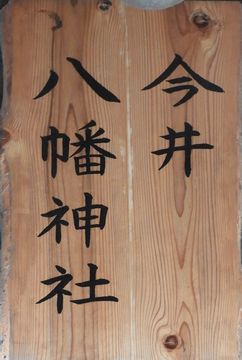 今井
八幡神社